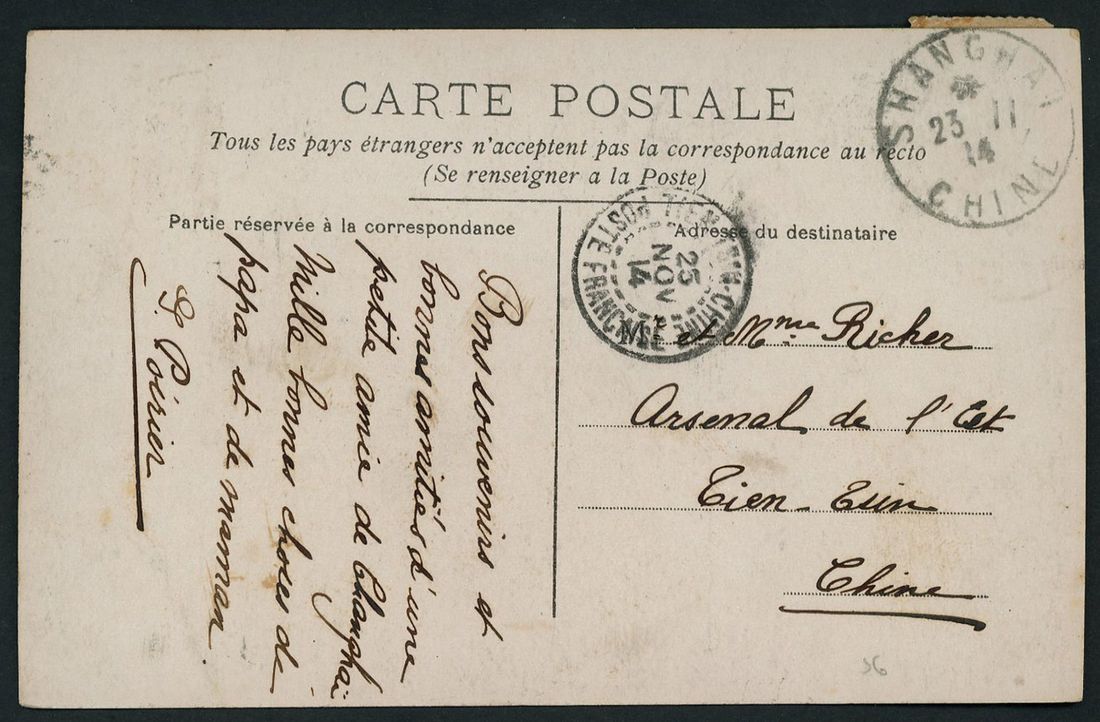 CARTE POSTALE
Tous les pays étrangers n'acceptent pas la correspondance au recto
(Se renseigner a la Poste)
SHANG-HAI
23 11
14
CHINE
Partie réservée à la correspondance
Adresse du destinataire
TIEN-TSIN-CHINE
25
NOV
14
POSTE FRANÇAISE
Bons souvenirs et
bonnes amitiés d'une
petite amie de Changhaï
Mille bonnes choses de
papa et de maman.
Poirier
M. et Mme Richer
Arsenal de l'Est
Tien-Tsin
Chine
36